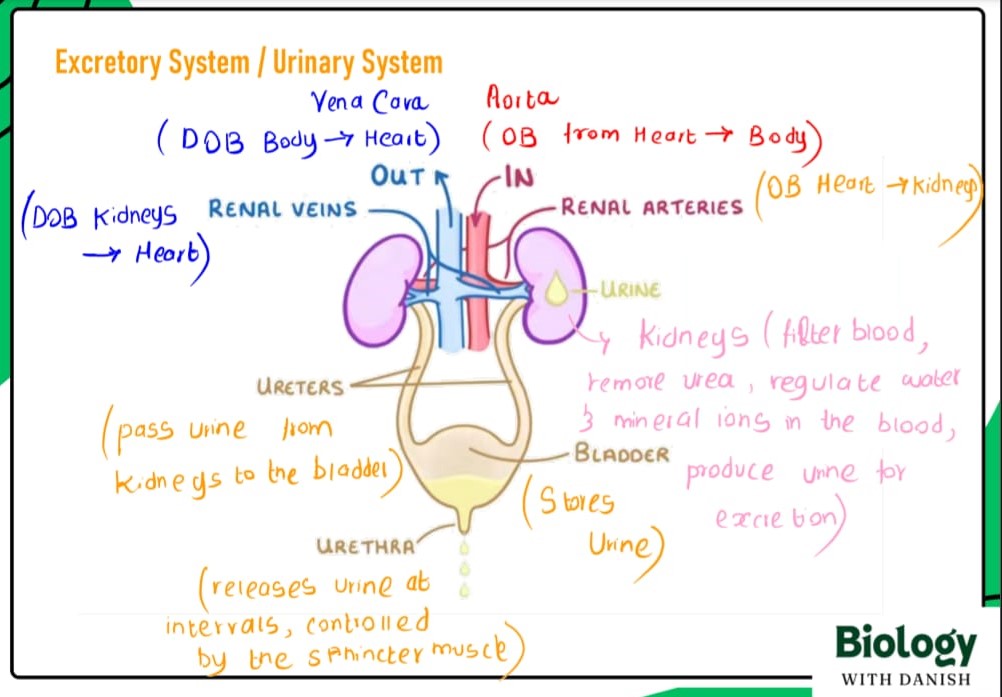 Excretory System / Urinary System
Vena Cava
(DOB Body → Heart)
Aorta
(OB from Heart → Body)
OUT
IN
(DOB Kidneys
→ Heart)
RENAL VEINS
RENAL ARTERIES
(OB Heart → Kidneys)
URINE
Kidneys (filter blood,
remove urea, regulate water
& mineral ions in the blood,
produce urine for
excretion)
URETERS
(pass urine from
kidneys to the bladder)
BLADDER
(Stores
Urine)
URETHRA
(releases urine at
intervals, controlled
by the sphincter muscle)
Biology
WITH DANISH